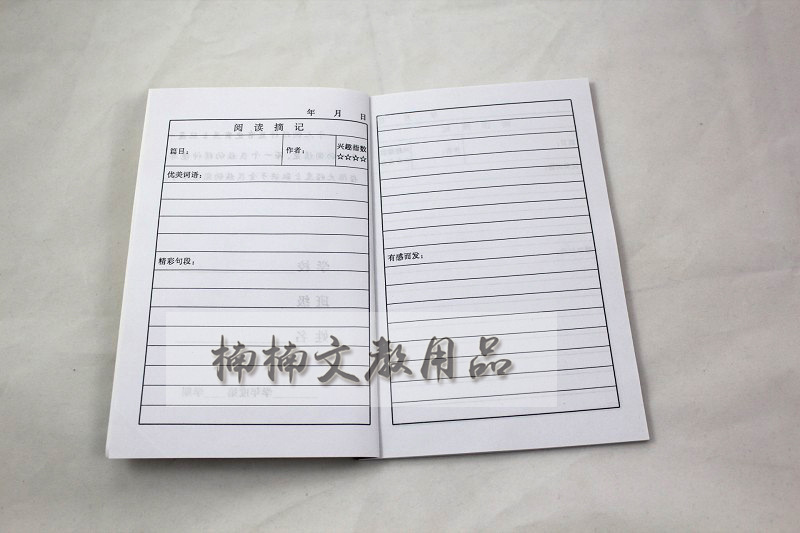 年 月 日
阅 读 摘 记
篇目： 作者： 兴趣指数
☆☆☆☆
优美词语：
精彩句段：
学 校
班 级
姓 名
有感而发：
楠楠文教用品